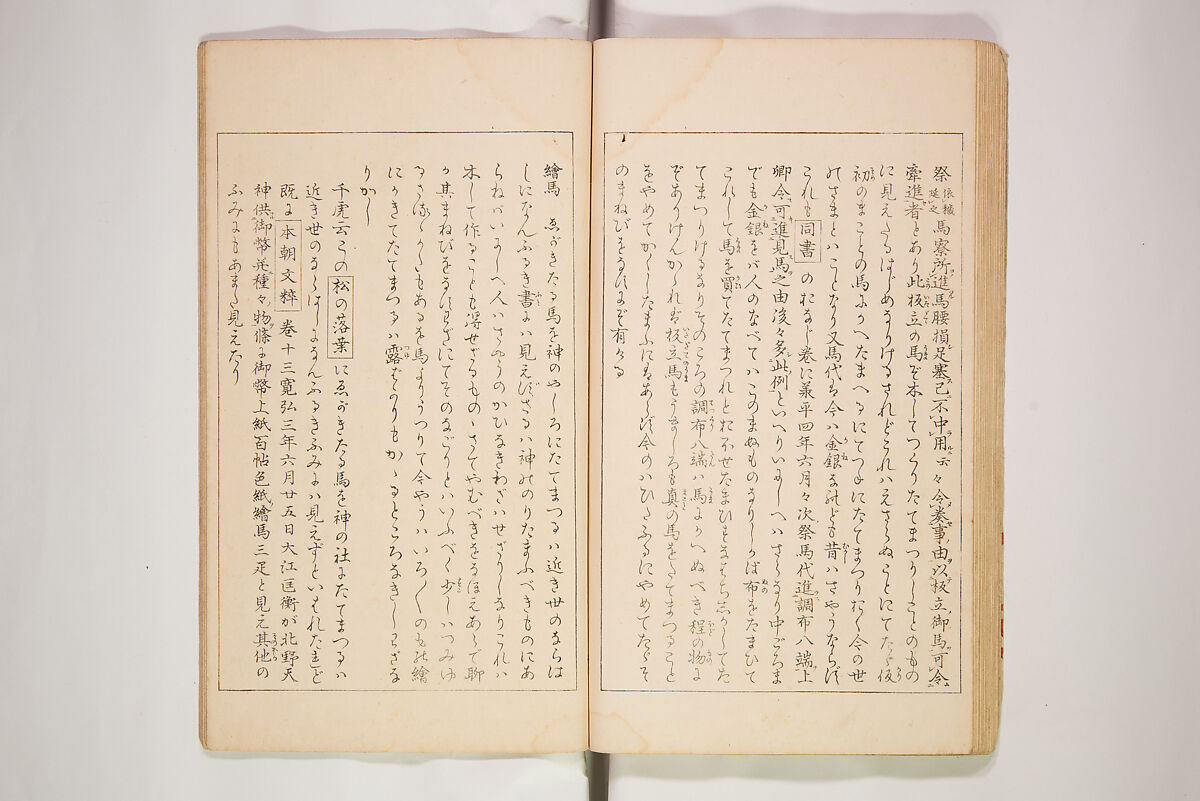 祭依穢延之馬寮所進馬腰損足蹇已不中用云々令奏事由以板立御馬可令
牽進者とあり此板立の馬ぞ木してつくりたてまつりしことのもの
に見えたるはじめなりけるされどこれハえさらぬことにてたゞ仮
初のまことの馬にかへたまへるにてつねにたてまつりおく今の世
のさまとハことなり又馬代も今ハ金銀なれども昔ハさやうならず
これも同書のおなじ巻に兼平四年六月々次祭馬代進調布八端上
卿令可進見馬之由後々多此例といへりいにしへハさるなり中ごろま
でも金銀をバ人のなべてハこのまぬものなりしかば布をたまひて
これして馬を買てたてまつれとおほせたまひもまたしかしてた
てまつりけるなりそのころの調布八端ハ馬にかへぬべき程の物に
ぞありけんかゝれば板立馬もうましろも真の馬をたてまつること
をやめてかへしたまふにはあらず今のハひたふるにやめてたゞそ
のまねびをするにぞ有ける
繪馬 ゑがきたる馬を神のやしろにたてまつるハ近き世のならは
しになんふるき書にハ見えずさるハ神のりたまふべきものにあ
らねバいにしへ人ハさやうのかひなきわざハせざりしなりこれハ
木して作ることも得せざるものゝさてやむべきをなほえあらで聊
か其まねびをするわざにてそのなごりとハいふべく少しハつみゆ
るさるべきかたもあるを馬よりうつりて今やうハいろ〳〵のもの繪
にかきてたてまつるハ露ばかりもかゝるところなきしわざな
りかし
千虎云この松の落葉にゑがきたる馬を神の社にたてまつるハ
近き世のならはしになんふるきふみにハ見えずといはれたれど
既に本朝文粹卷十三寛弘三年六月廿五日大江匡衡が北野天
神供御幣并種々物條に御幣上紙百帖色紙繪馬三疋と見え其他の
ふみにもあまた見えたり